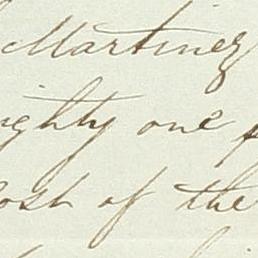 Martinez
ighty one
osh of the